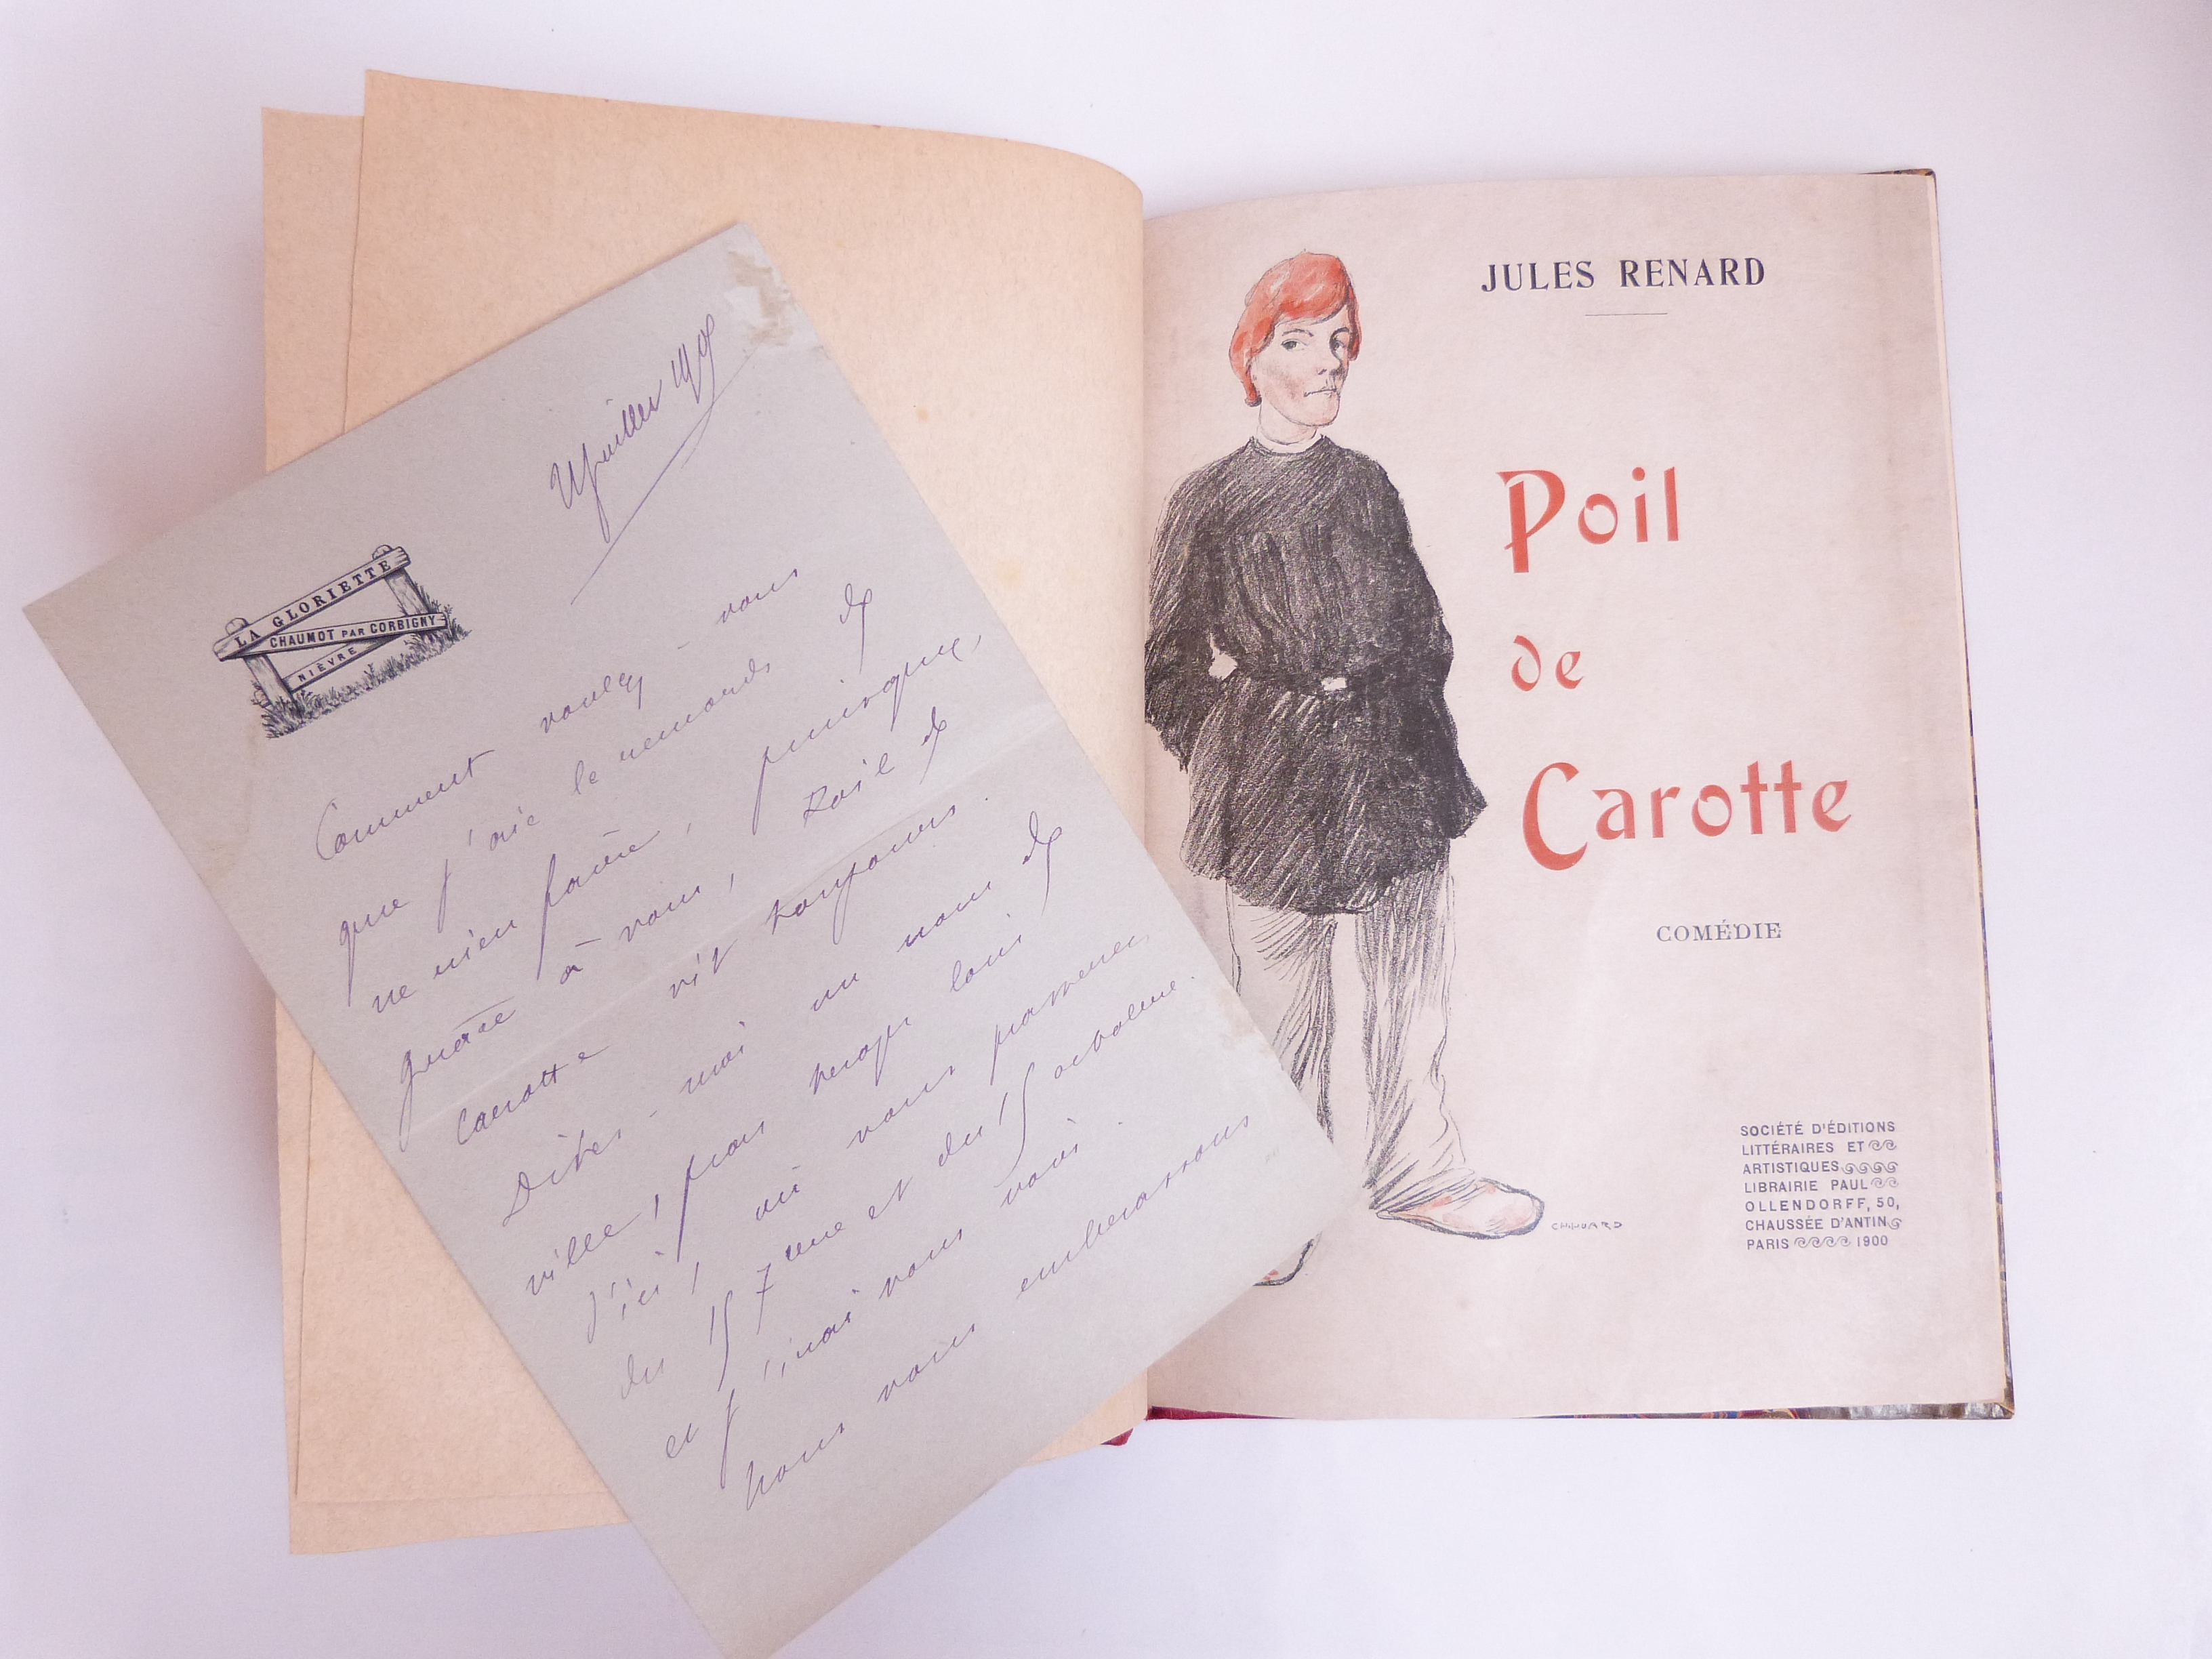 juillet
LA GLORIETTE
CHAUMOT PAR CORBIGNY
NIÈVRE
Comment voulez-vous
que j'aie le remords de
ne rien faire, puisque,
grâce à vous, Poil de
Carotte vit toujours.
Dites-moi un nom de
ville! pas trop loin
d'ici! où vous promenez
du 15 7bre et du 15 octobre.
et j'irai vous voir.
Nous vous embrassons
JULES RENARD
Poil
de
Carotte
COMÉDIE
SOCIÉTÉ D'ÉDITIONS
LITTÉRAIRES ET
ARTISTIQUES
LIBRAIRIE PAUL
OLLENDORFF, 50,
CHAUSSÉE D'ANTIN
PARIS 1900